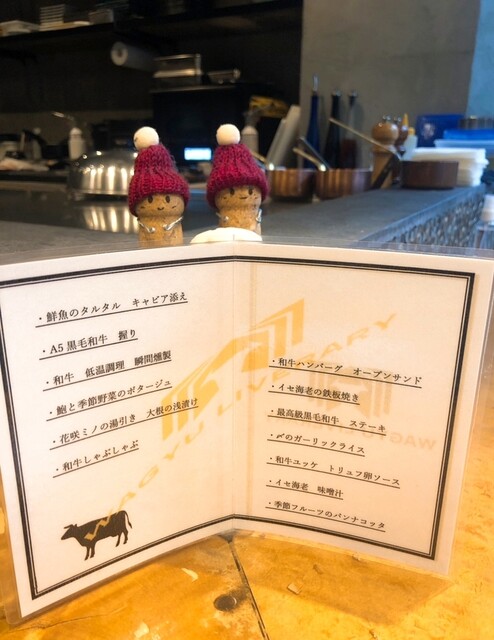 ・鮮魚のタルタル　キャビア添え
・A5黒毛和牛　握り
・和牛　低温調理　瞬間燻製
・鮑と季節野菜のポタージュ
・花咲ミノの湯引き　大根の浅漬け
・和牛しゃぶしゃぶ
・和牛ハンバーグ　オープンサンド
・イセ海老の鉄板焼き
・最高級黒毛和牛　ステーキ
・〆のガーリックライス
・和牛ユッケ　トリュフ卵ソース
・イセ海老　味噌汁
・季節フルーツのパンナコッタ
WAGYU